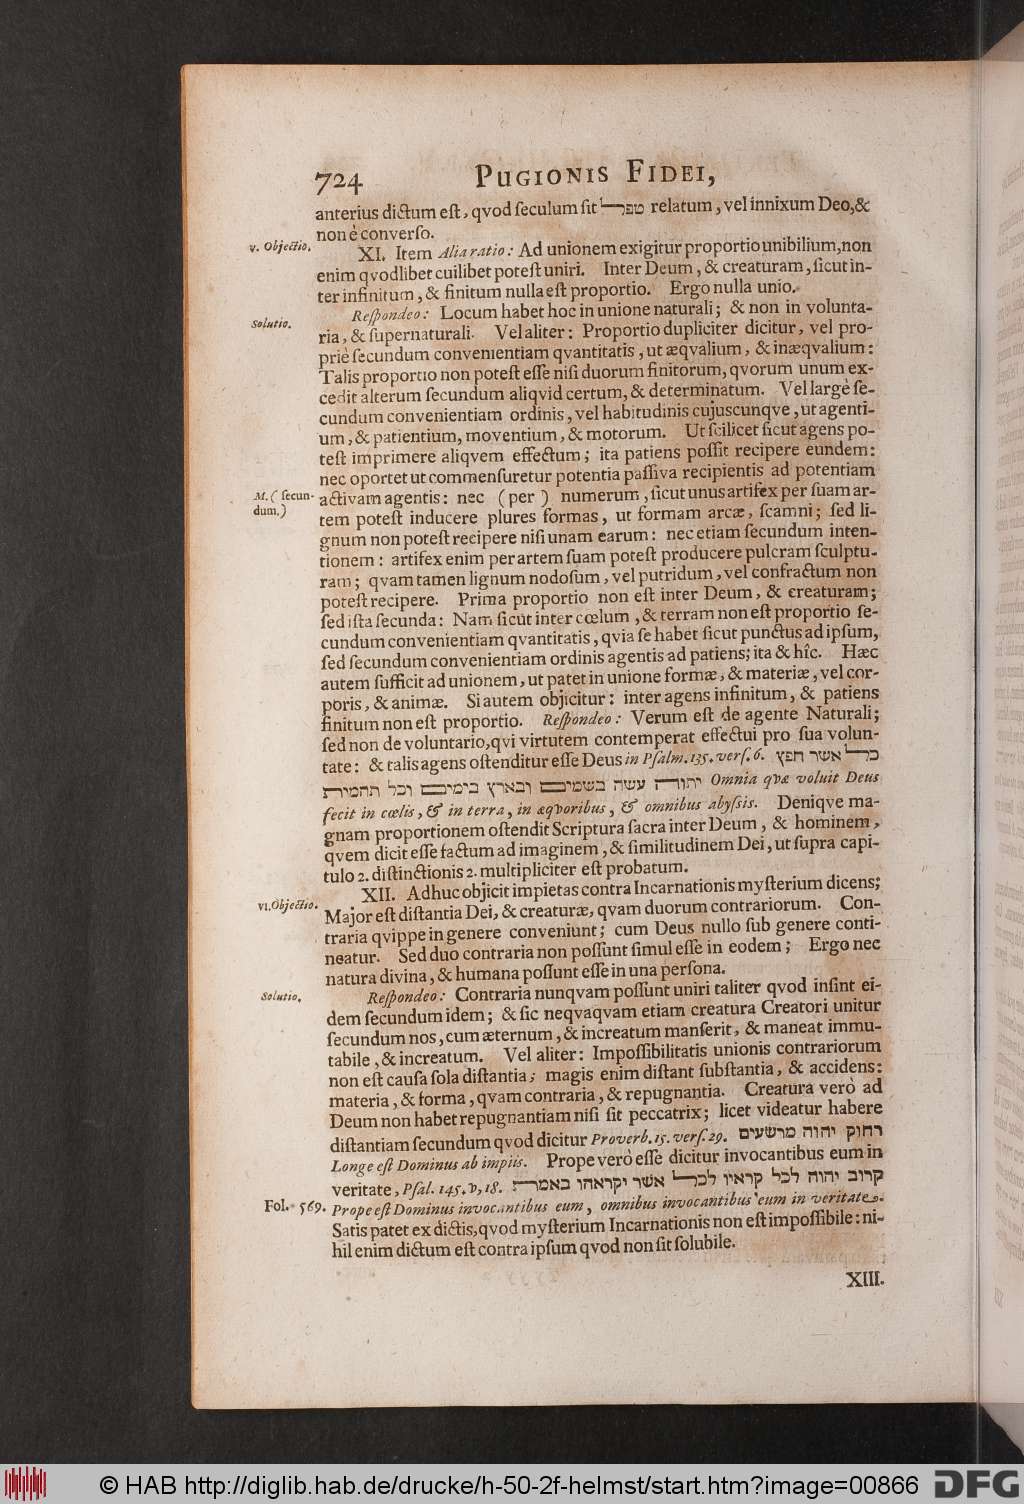 724 PUGIONIS FIDEI,
anterius dictum est, qvod seculum sit טפל relatum, vel innixum Deo, &
non è converso.
v. Objectio.
XI. Item Alia ratio: Ad unionem exigitur proportio unibilium, non
enim qvodlibet cuilibet potest uniri. Inter Deum, & creaturam, sicut in-
ter infinitum, & finitum nulla est proportio. Ergo nulla unio.
Solutio.
Respondeo: Locum habet hoc in unione naturali; & non in volunta-
ria, & supernaturali. Vel aliter: Proportio dupliciter dicitur, vel pro-
priè secundum convenientiam qvantitatis, ut æqvalium, & inæqvalium:
Talis proportio non potest esse nisi duorum finitorum, qvorum unum ex-
cedit alterum secundum aliqvid certum, & determinatum. Vel largè se-
cundum convenientiam ordinis, vel habitudinis cujuscunqve, ut agenti-
um, & patientium, moventium, & motorum. Ut scilicet sicut agens po-
test imprimere aliqvem effectum; ita patiens possit recipere eundem:
nec oportet ut commensuretur potentia passiva recipientis ad potentiam
M. (secun-
dum.)
activam agentis: nec (per) numerum, sicut unus artifex per suam ar-
tem potest inducere plures formas, ut formam arcæ, scamni; sed li-
gnum non potest recipere nisi unam earum: nec etiam secundum inten-
tionem: artifex enim per artem suam potest producere pulcram sculptu-
ram; qvam tamen lignum nodosum, vel putridum, vel confractum non
potest recipere. Prima proportio non est inter Deum, & creaturam;
sed ista secunda: Nam sicut inter cœlum, & terram non est proportio se-
cundum convenientiam qvantitatis, qvia se habet sicut punctus ad ipsum,
sed secundum convenientiam ordinis agentis ad patiens; ita & hîc. Hæc
autem sufficit ad unionem, ut patet in unione formæ, & materiæ, vel cor-
poris, & animæ. Si autem objicitur: inter agens infinitum, & patiens
finitum non est proportio. Respondeo: Verum est de agente Naturali;
sed non de voluntario, qvi virtutem contemperat effectui pro sua volun-
tate: & talis agens ostenditur esse Deus in Psalm. 135. vers. 6. כל אשר חפץ
יהוה עשה בשמים ובארץ בימים וכל תהמות Omnia qvæ voluit Deus
fecit in cœlis, & in terra, in æqvoribus, & omnibus abyssis. Deniqve ma-
gnam proportionem ostendit Scriptura sacra inter Deum, & hominem,
qvem dicit esse factum ad imaginem, & similitudinem Dei, ut supra capi-
tulo 2. distinctionis 2. multipliciter est probatum.
VI. Objectio.
XII. Adhuc objicit impietas contra Incarnationis mysterium dicens;
Major est distantia Dei, & creaturæ, qvam duorum contrariorum. Con-
traria qvippe in genere conveniunt; cum Deus nullo sub genere conti-
neatur. Sed duo contraria non possunt simul esse in eodem; Ergo nec
natura divina, & humana possunt esse in una persona.
Solutio.
Respondeo: Contraria nunqvam possunt uniri taliter qvod insint ei-
dem secundum idem; & sic neqvaqvam etiam creatura Creatori unitur
secundum nos, cum æternum, & increatum manserit, & maneat immu-
tabile, & increatum. Vel aliter: Impossibilitatis unionis contrariorum
non est causa sola distantia; magis enim distant substantia, & accidens:
materia, & forma, qvam contraria, & repugnantia. Creatura verò ad
Deum non habet repugnantiam nisi sit peccatrix; licet videatur habere
distantiam secundum qvod dicitur Proverb. 15. vers. 29. רחוק יהוה מרשעים
Longe est Dominus ab impiis. Prope verò esse dicitur invocantibus eum in
veritate, Psal. 145. v, 18. קרוב יהוה לכל קראיו לכל אשר יקראהו באמת
Fol. 569.
Prope est Dominus invocantibus eum, omnibus invocantibus eum in veritate.
Satis patet ex dictis, qvod mysterium Incarnationis non est impossibile: ni-
hil enim dictum est contra ipsum qvod non sit solubile.
XIII.
© HAB http://diglib.hab.de/drucke/h-50-2f-helmst/start.htm?image=00866 DFG